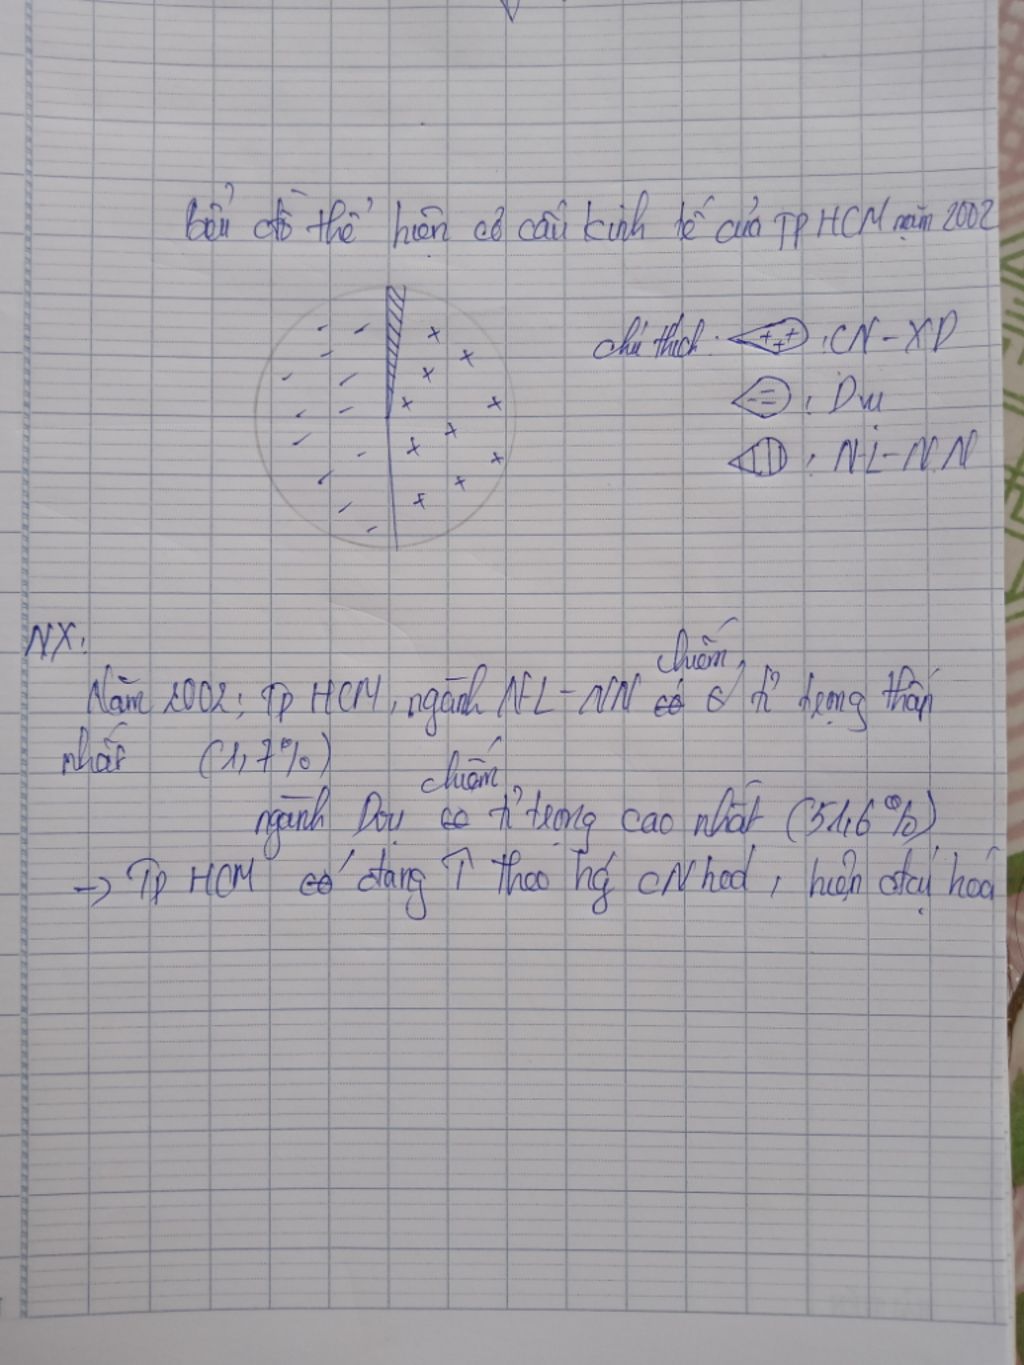 biểu đồ thể hiện cơ cấu kinh tế của TP HCM năm 2002
chú thích: +++ : CN - XD
: Dvụ
: NL - NN
NX:
Năm 2002: Tp HCM, ngành NL - NN chiếm tỉ trọng thấp
nhất (1,7%)
ngành Dvụ chiếm tỉ trọng cao nhất (51,6%)
→ Tp HCM đang ↑ theo hg CN hoá, hiện đại hoá